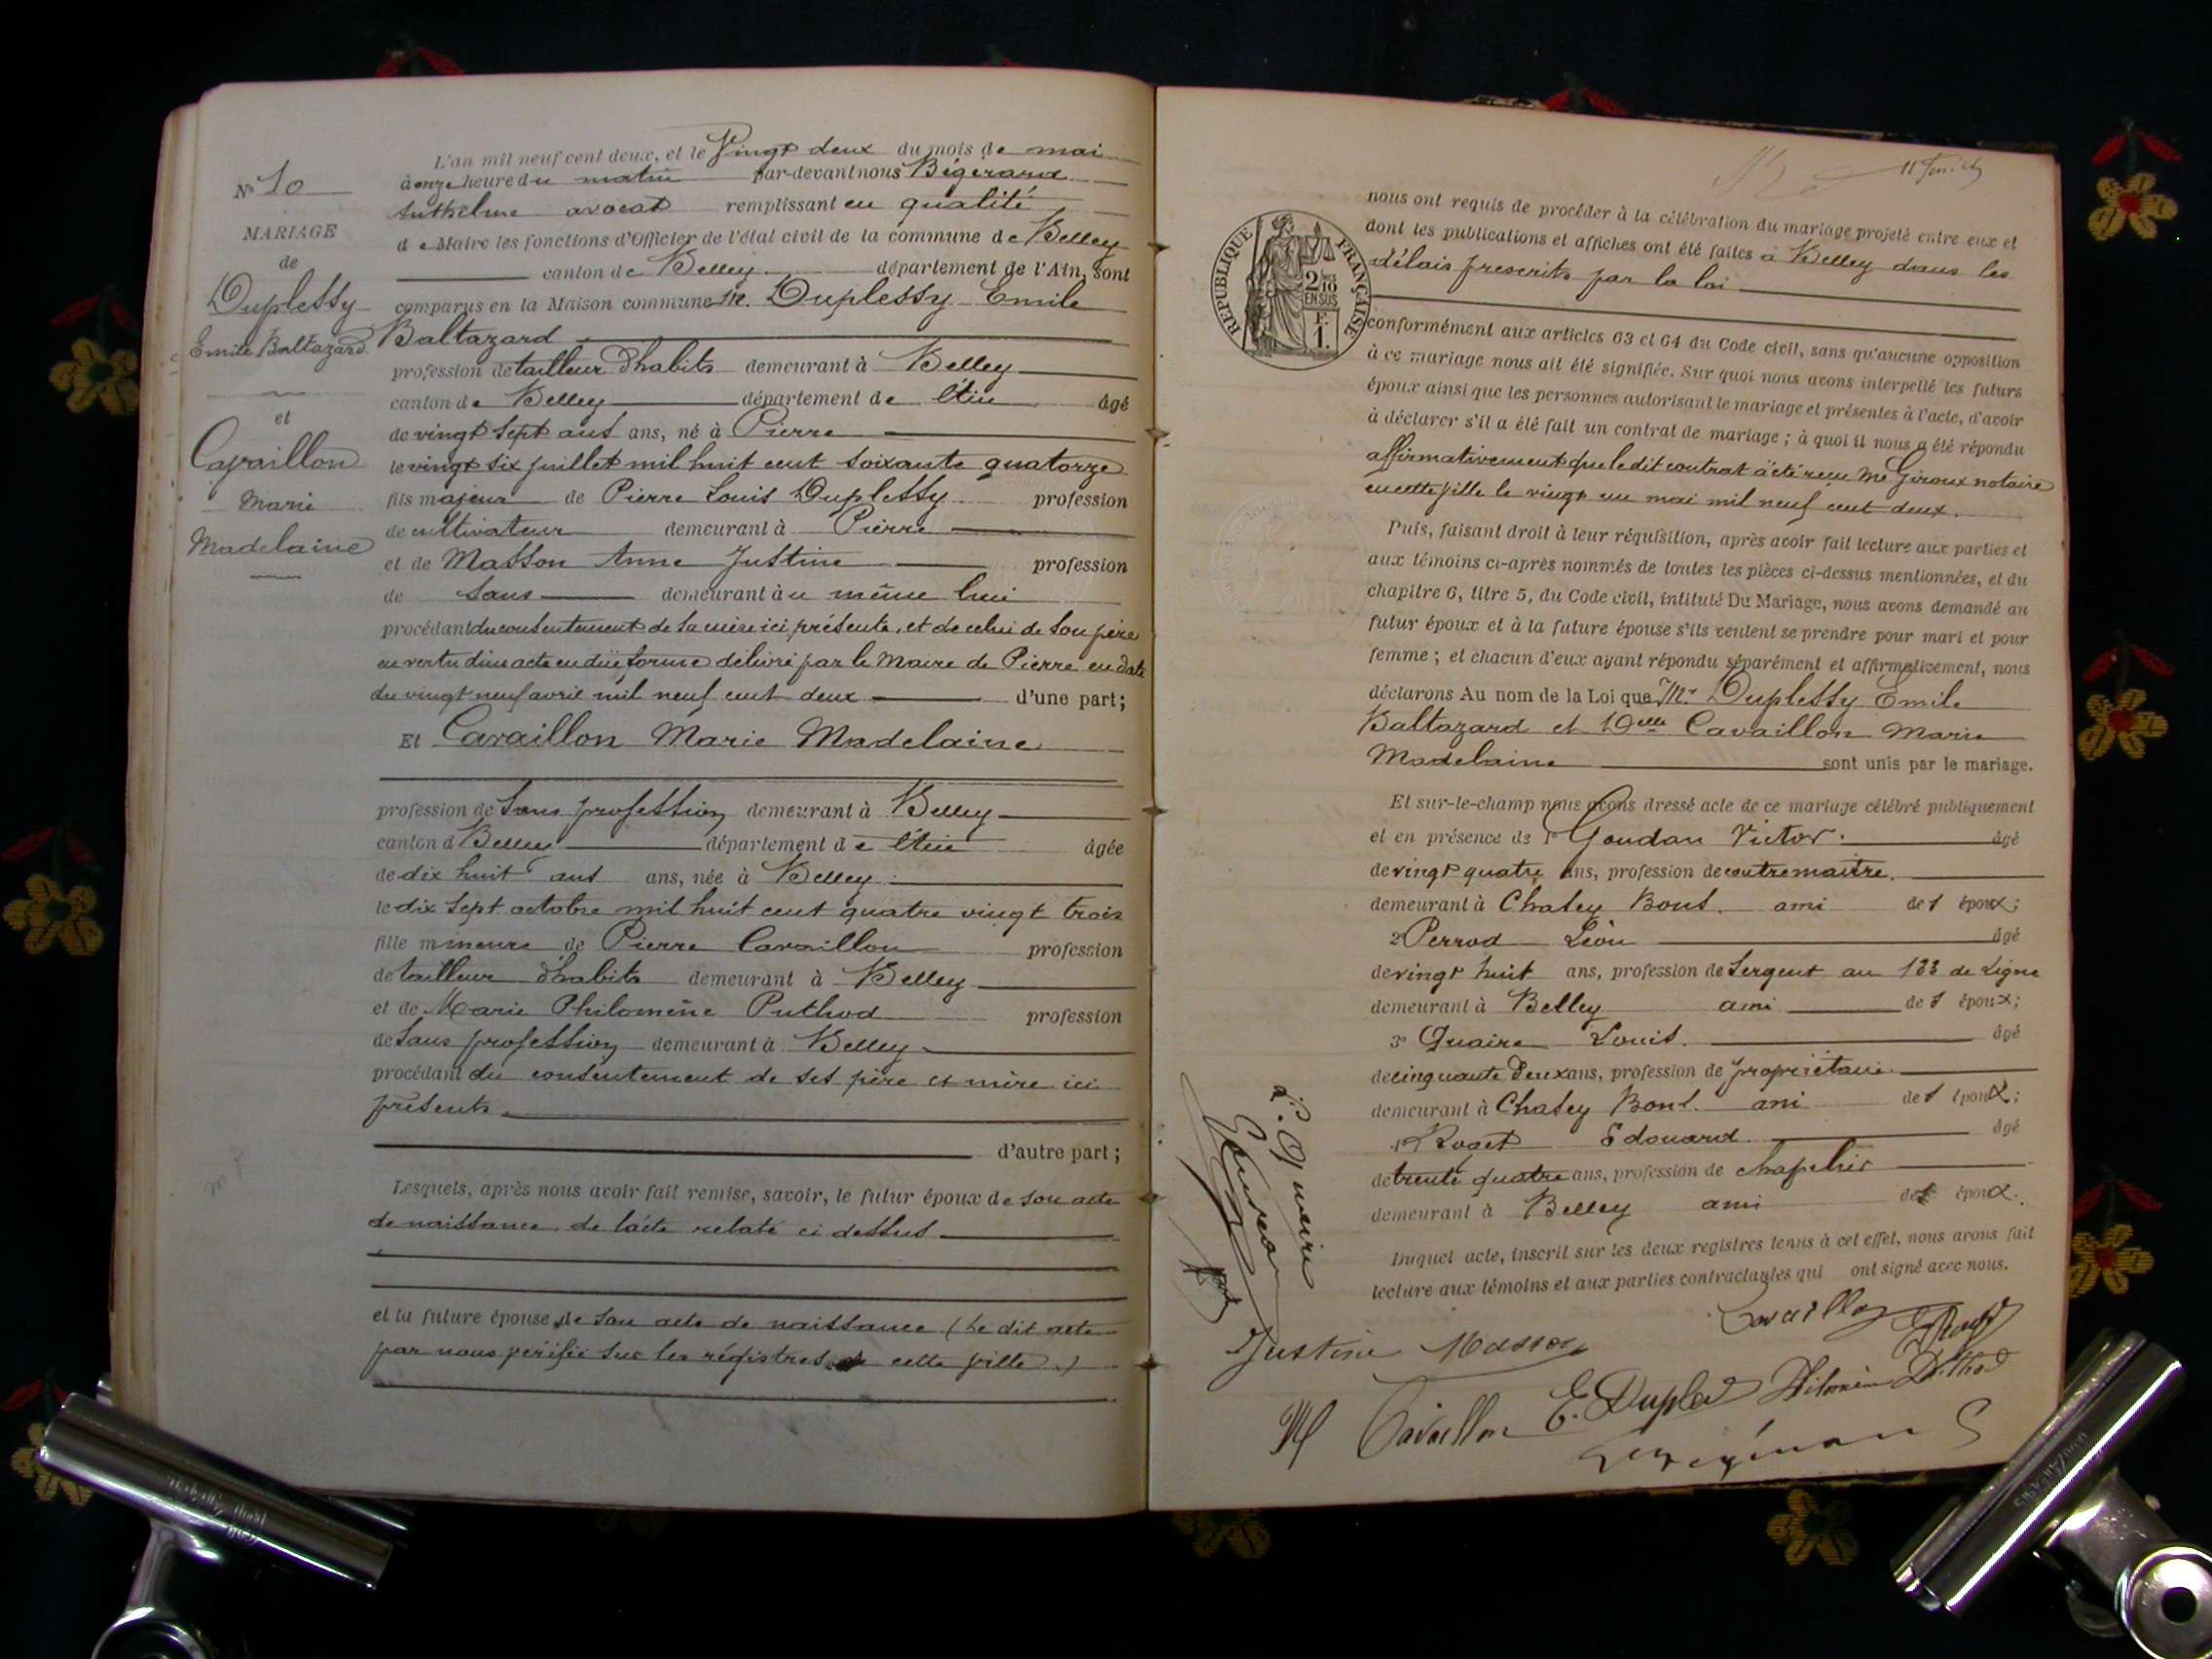 N° 10
MARIAGE
de
Duplessy
Emile Baltazard
et
Cavaillon
Marie
Madelaine
L'an mil neuf cent deux, et le Vingt deux du mois de mai
à onze heure du matin par-devant nous Bégérard
Anthelme avocat remplissant en qualité
de Maire les fonctions d'Officier de l'état civil de la commune de Belley
canton de Belley département de l'Ain, sont
comparus en la Maison commune M. Duplessy Emile
Baltazard
profession de tailleur d'habits demeurant à Belley
canton de Belley département de l'Ain âgé
de vingt sept ans ans, né à Pierre
le vingt six juillet mil huit cent soixante quatorze
fils majeur de Pierre Louis Duplessy profession
de cultivateur demeurant à Pierre
et de Masson Anne Justine profession
de sans demeurant à u même lieu
procédant du consentement de sa mère ici présente, et de celui de son père
en vertu d'un acte en due forme délivré par le Maire de Pierre en date
du vingt neuf avril mil neuf cent deux d'une part;
Et Cavaillon Marie Madelaine
profession de Sans profession demeurant à Belley
canton d Belley département de l'Ain âgée
de dix huit ans ans, née à Belley
le dix sept octobre mil huit cent quatre vingt trois
fille mineure de Pierre Cavaillon profession
de tailleur d'habits demeurant à Belley
et de Marie Philomène Puthod profession
de Sans profession demeurant à Belley
procédant du consentement de ses père et mère ici
présents
d'autre part;
Lesquels, après nous avoir fait remise, savoir, le futur époux de son acte
de naissance, de l'acte relaté ci dessus
et la future épouse de son acte de naissance (le dit acte
par nous vérifié sur les régistres de cette ville)
REPUBLIQUE FRANÇAISE
2/10
EN SUS
F.
1.
nous ont requis de procéder à la célébration du mariage projeté entre eux et
dont les publications et affiches ont été faites à Belley dans les
délais prescrits par la loi
conformément aux articles 63 et 64 du Code civil, sans qu'aucune opposition
à ce mariage nous ait été signifiée. Sur quoi nous avons interpellé les futurs
époux ainsi que les personnes autorisant le mariage et présentes à l'acte, d'avoir
à déclarer s'il a été fait un contrat de mariage; à quoi il nous a été répondu
affirmativement que le dit contrat a été reçu Me Giroux notaire
en cette ville le vingt un mai mil neuf cent deux.
Puis, faisant droit à leur réquisition, après avoir fait lecture aux parties et
aux témoins ci-après nommés de toutes les pièces ci-dessus mentionnées, et du
chapitre 6, titre 5, du Code civil, intitulé Du Mariage, nous avons demandé au
futur époux et à la future épouse s'ils veulent se prendre pour mari et pour
femme; et chacun d'eux ayant répondu séparément et affirmativement, nous
déclarons Au nom de la Loi que Mr Duplessy Emile
Baltazard et Delle Cavaillon Marie
Madelaine sont unis par le mariage.
Et sur-le-champ nous avons dressé acte de ce mariage célébré publiquement
et en présence de 1° Goudan Victor âgé
de vingt quatre ans, profession de contremaitre.
demeurant à Chasey Bons. ami de l époux;
2° Perrod Léon âgé
de vingt huit ans, profession de Sergent au 133 de Ligne
demeurant à Belley ami de l époux;
3° Quaire Louis. âgé
de cinquante deux ans, profession de propriétaire
demeurant à Chasey Bons. ami de l époux;
4° Roget Edouard. âgé
de trente quatre ans, profession de chapelier
demeurant à Belley ami de l époux.
Duquel acte, inscrit sur les deux registres tenus à cet effet, nous avons fait
lecture aux témoins et aux parties contractantes qui ont signé avec nous.
L. Quaire
Cavaillon
Justine Masson
M Cavaillon E. Duplessy Philomène Puthod